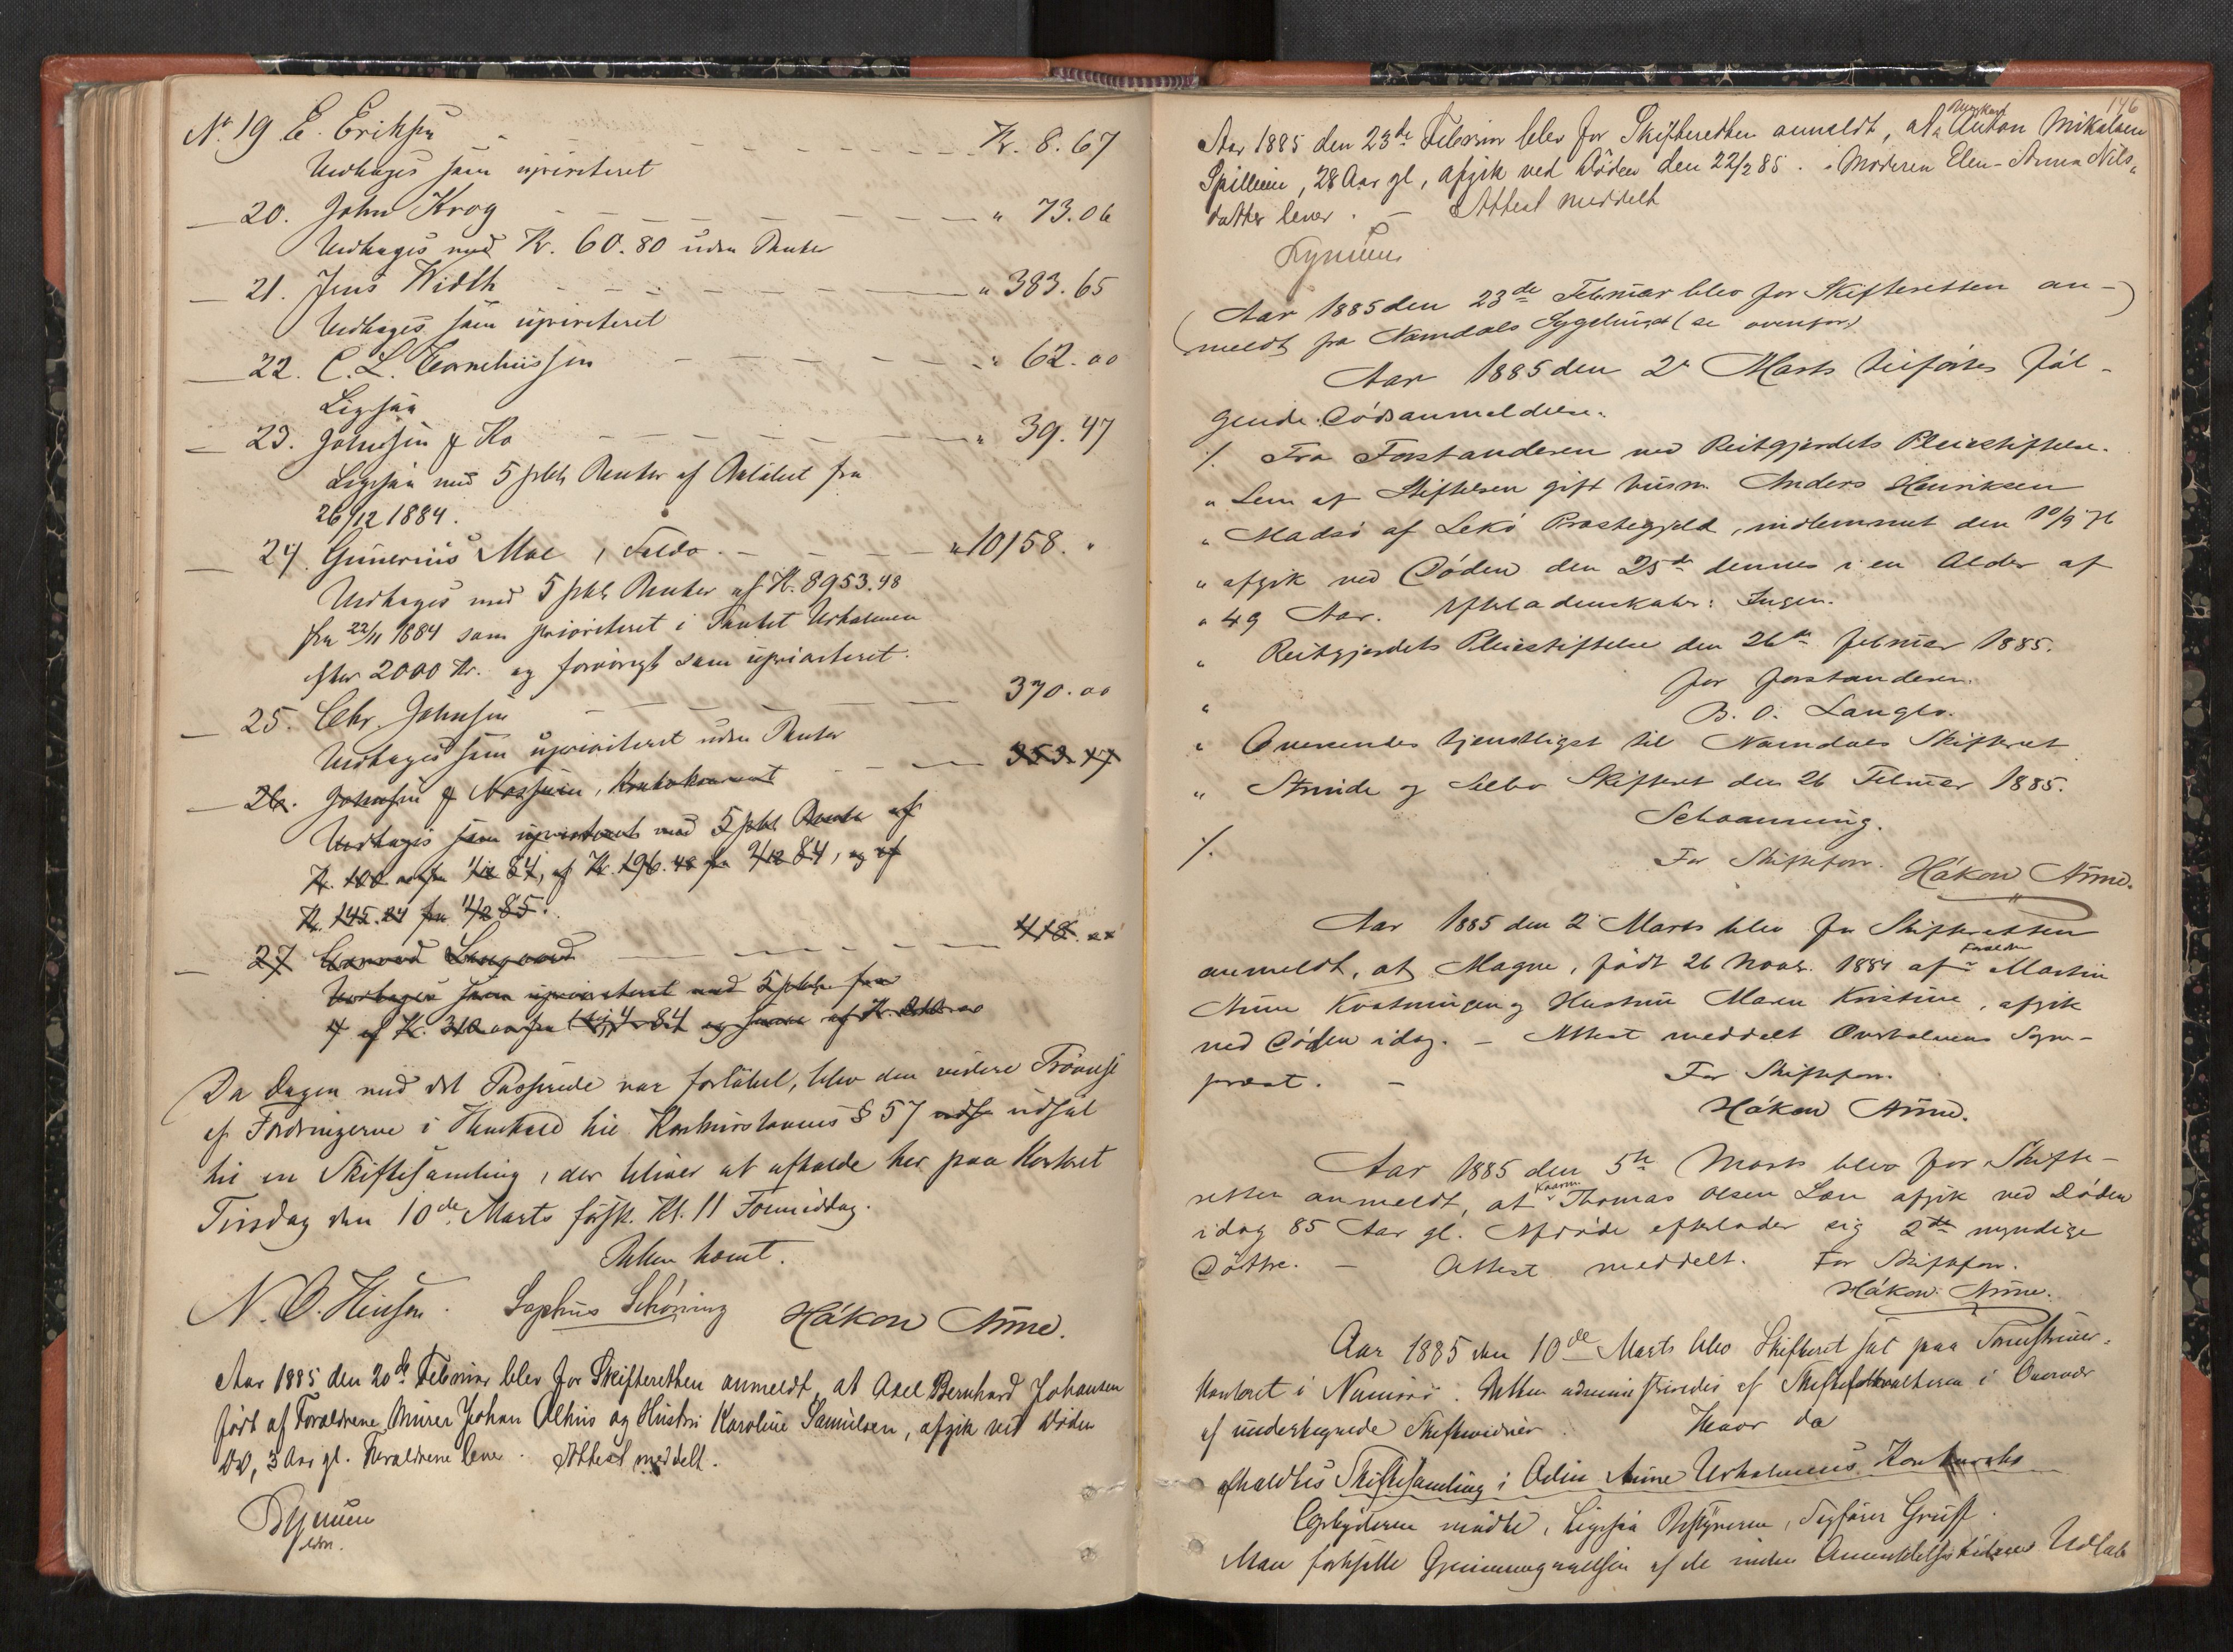 No 19 E. Eriksen - - - - - - - Kr. 8.67
Udtages som uprioriteret
— 20. John Krog - - - - - - - " 73.06
Udtages med Kr. 60.80 uden Renter
— 21. Jens Width - - - - - - " 383.65
Udtages som uprioriteret
— 22. C. L. Corneliussen - - - - - " 62.00
Ligesaa
— 23. Johnsen & Ko - - - - - - " 39.47
Ligesaa med 5 pCt. Renter af Beløbet fra
26/12 1884.
— 24. Gunerius Moe, Foldo. - - - - " 10158. "
Udtages med 5 pCt. Renter af Kr. 8953.48
fra 22/11 1884 som prioriteret i Pantet Urholmen
efter 2000 Kr. og forøvrigt som uprioriteret.
— 25. Chr. Johnsen - - - - - 370.00
Udtages som uprioriteret uden Renter
— 26. Johnsen &
Udtages som uprioriteret med 5 pCt. Rente af
Kr. 100 84, af Kr. 196.48 fra 84, og af
Kr. 145.24 fra 85.
— 27 - - - - 418.
Udtages som uprioriteret med 5 pCt. fra
Da Dagen med det Passerede var forløbet, blev den videre Prøvelse
af Fordringerne i Henhold til Konkurslovens § 57 udsat
til en Skiftesamling, der bliver at afholde her paa Kontoret
Tirsdag den 10de Marts førstk. Kl. 11 Formiddag.
Retten hævet.
Sophus Schöning Håkon Anne.
Aar 1885 den 20de Februar blev for Skifteretten anmeldt, at Axel Bernhard Johansen
født af Forældrene Murer Johan Alhus og Hustru Karoline Samuelsen, afgik ved Døden
DD, 3 Aar gl. Forældrene lever. Attest meddelt.
146
Aar 1885 den 23de Februar blev for Skifteretten anmeldt, at Ungkarl Anton Mikalsen
Spillum, 28 Aar gl, afgik ved Døden den 22/2 85. - Moderen Elen-Anna Nils-
datter lever. - Attest meddelt
(Aar 1885 den 23de Februar blev for Skifteretten an-)
meldt fra Namdals Sygehuset (se ovenfor)
Aar 1885 den 2. Marts tilførtes føl-
gende Dødsanmeldelse.
%. Fra Forstanderen ved Reitgjerdets Pleiestiftelse.
" Lem af Stiftelsen gift husm. Anders Henriksen
" Madsø af Lekø Præstegjeld, indlemmet den 10/9 76
" afgik ved Døden den 25de dennes i en Alder af
" 49 Aar. Efterladenskaber: Ingen.
" Reitgjerdets Pleiestiftelse den 26de februar 1885.
for forstanderen.
" B. O. Langlo.
" Oversendes tjenstligst til Namdals Skifteret
" Strinde og Selbo Skifteret den 26 Februar 1885.
Schanning.
%. For Skiftefor. Håkon Anne.
Aar 1885 den 2 Marts blev for Skifteretten
anmeldt, at Magne, født 26 Novb. 1884 af Forældre Martin
Anne Kostningen og Hustru Maren Kristine, afgik
ved Døden idag. - Attest meddelt Overhalvens Sogne-
præst. - For Skiftefor.
Håkon Anne.
Aar 1885 den 5te Marts blev for Skifte-
retten anmeldt, at Kaarm. Thomas Olsen Lan afgik ved Døden
idag 85 Aar gl. Afdøde efterlader sig 2de myndige
Døttre. - Attest meddelt. For Skiftefor.
Håkon Anne.
Aar 1885 den 10de Marts blev Skifteret sat paa Sorenskriver-
kontoret i Namsos. Retten administreredes af Skifteforvalteren i Overvær
af undertegnede Skiftevidner. Hvor da
afholdtes Skiftesamling i Odin Anne Urholmens Konkursbo
Opbyderen mødte, ligesaa Bestyreren, Sagfører Gruff.
Man fortsatte Gjennemgaaelsen af de inden Anmeldelsestidens Udløb